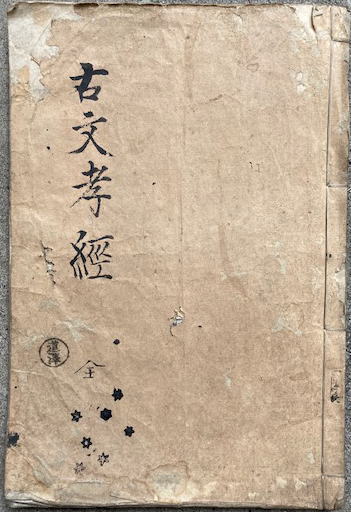 古文孝經
全